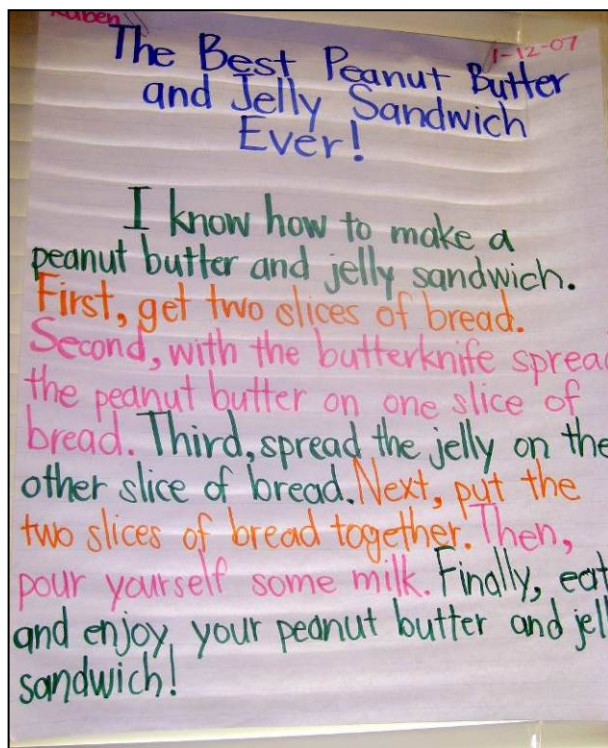 Ruben
1-12-07
The Best Peanut Butter
and Jelly Sandwich
Ever!
I know how to make a
peanut butter and jelly sandwich.
First, get two slices of bread.
Second, with the butterknife spread
the peanut butter on one slice of
bread. Third, spread the jelly on the
other slice of bread. Next, put the
two slices of bread together. Then,
pour yourself some milk. Finally, eat
and enjoy your peanut butter and jell
sandwich!